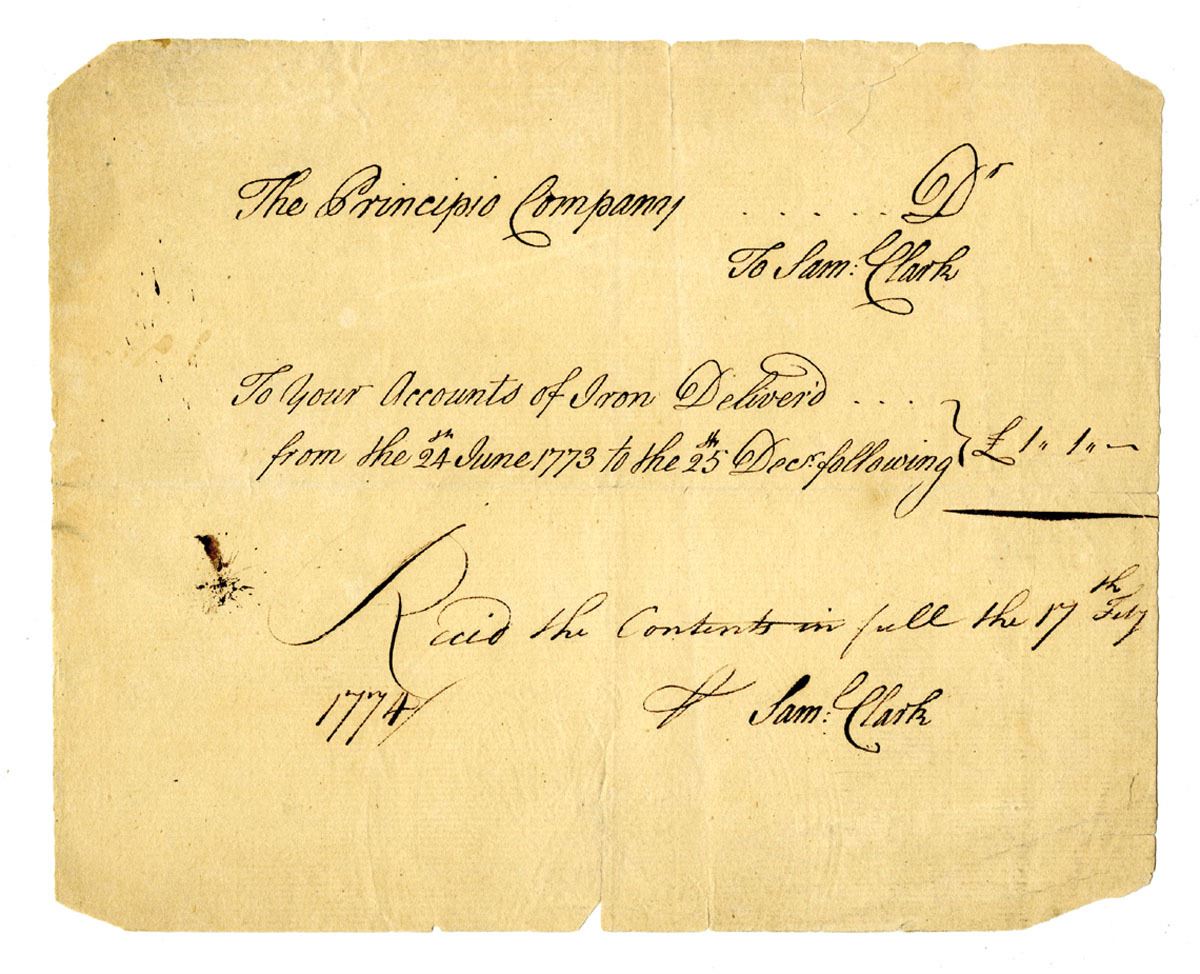 The Principio Company . . . . . . Dr
To Saml: Clark
To Your Accounts of Iron Deliver'd . . . .
from the 24th June 1773 to the 25th Decr. following } £ 1„ 1„ —
Recied the Contents in full the 17th Feby
1774 Saml: Clark